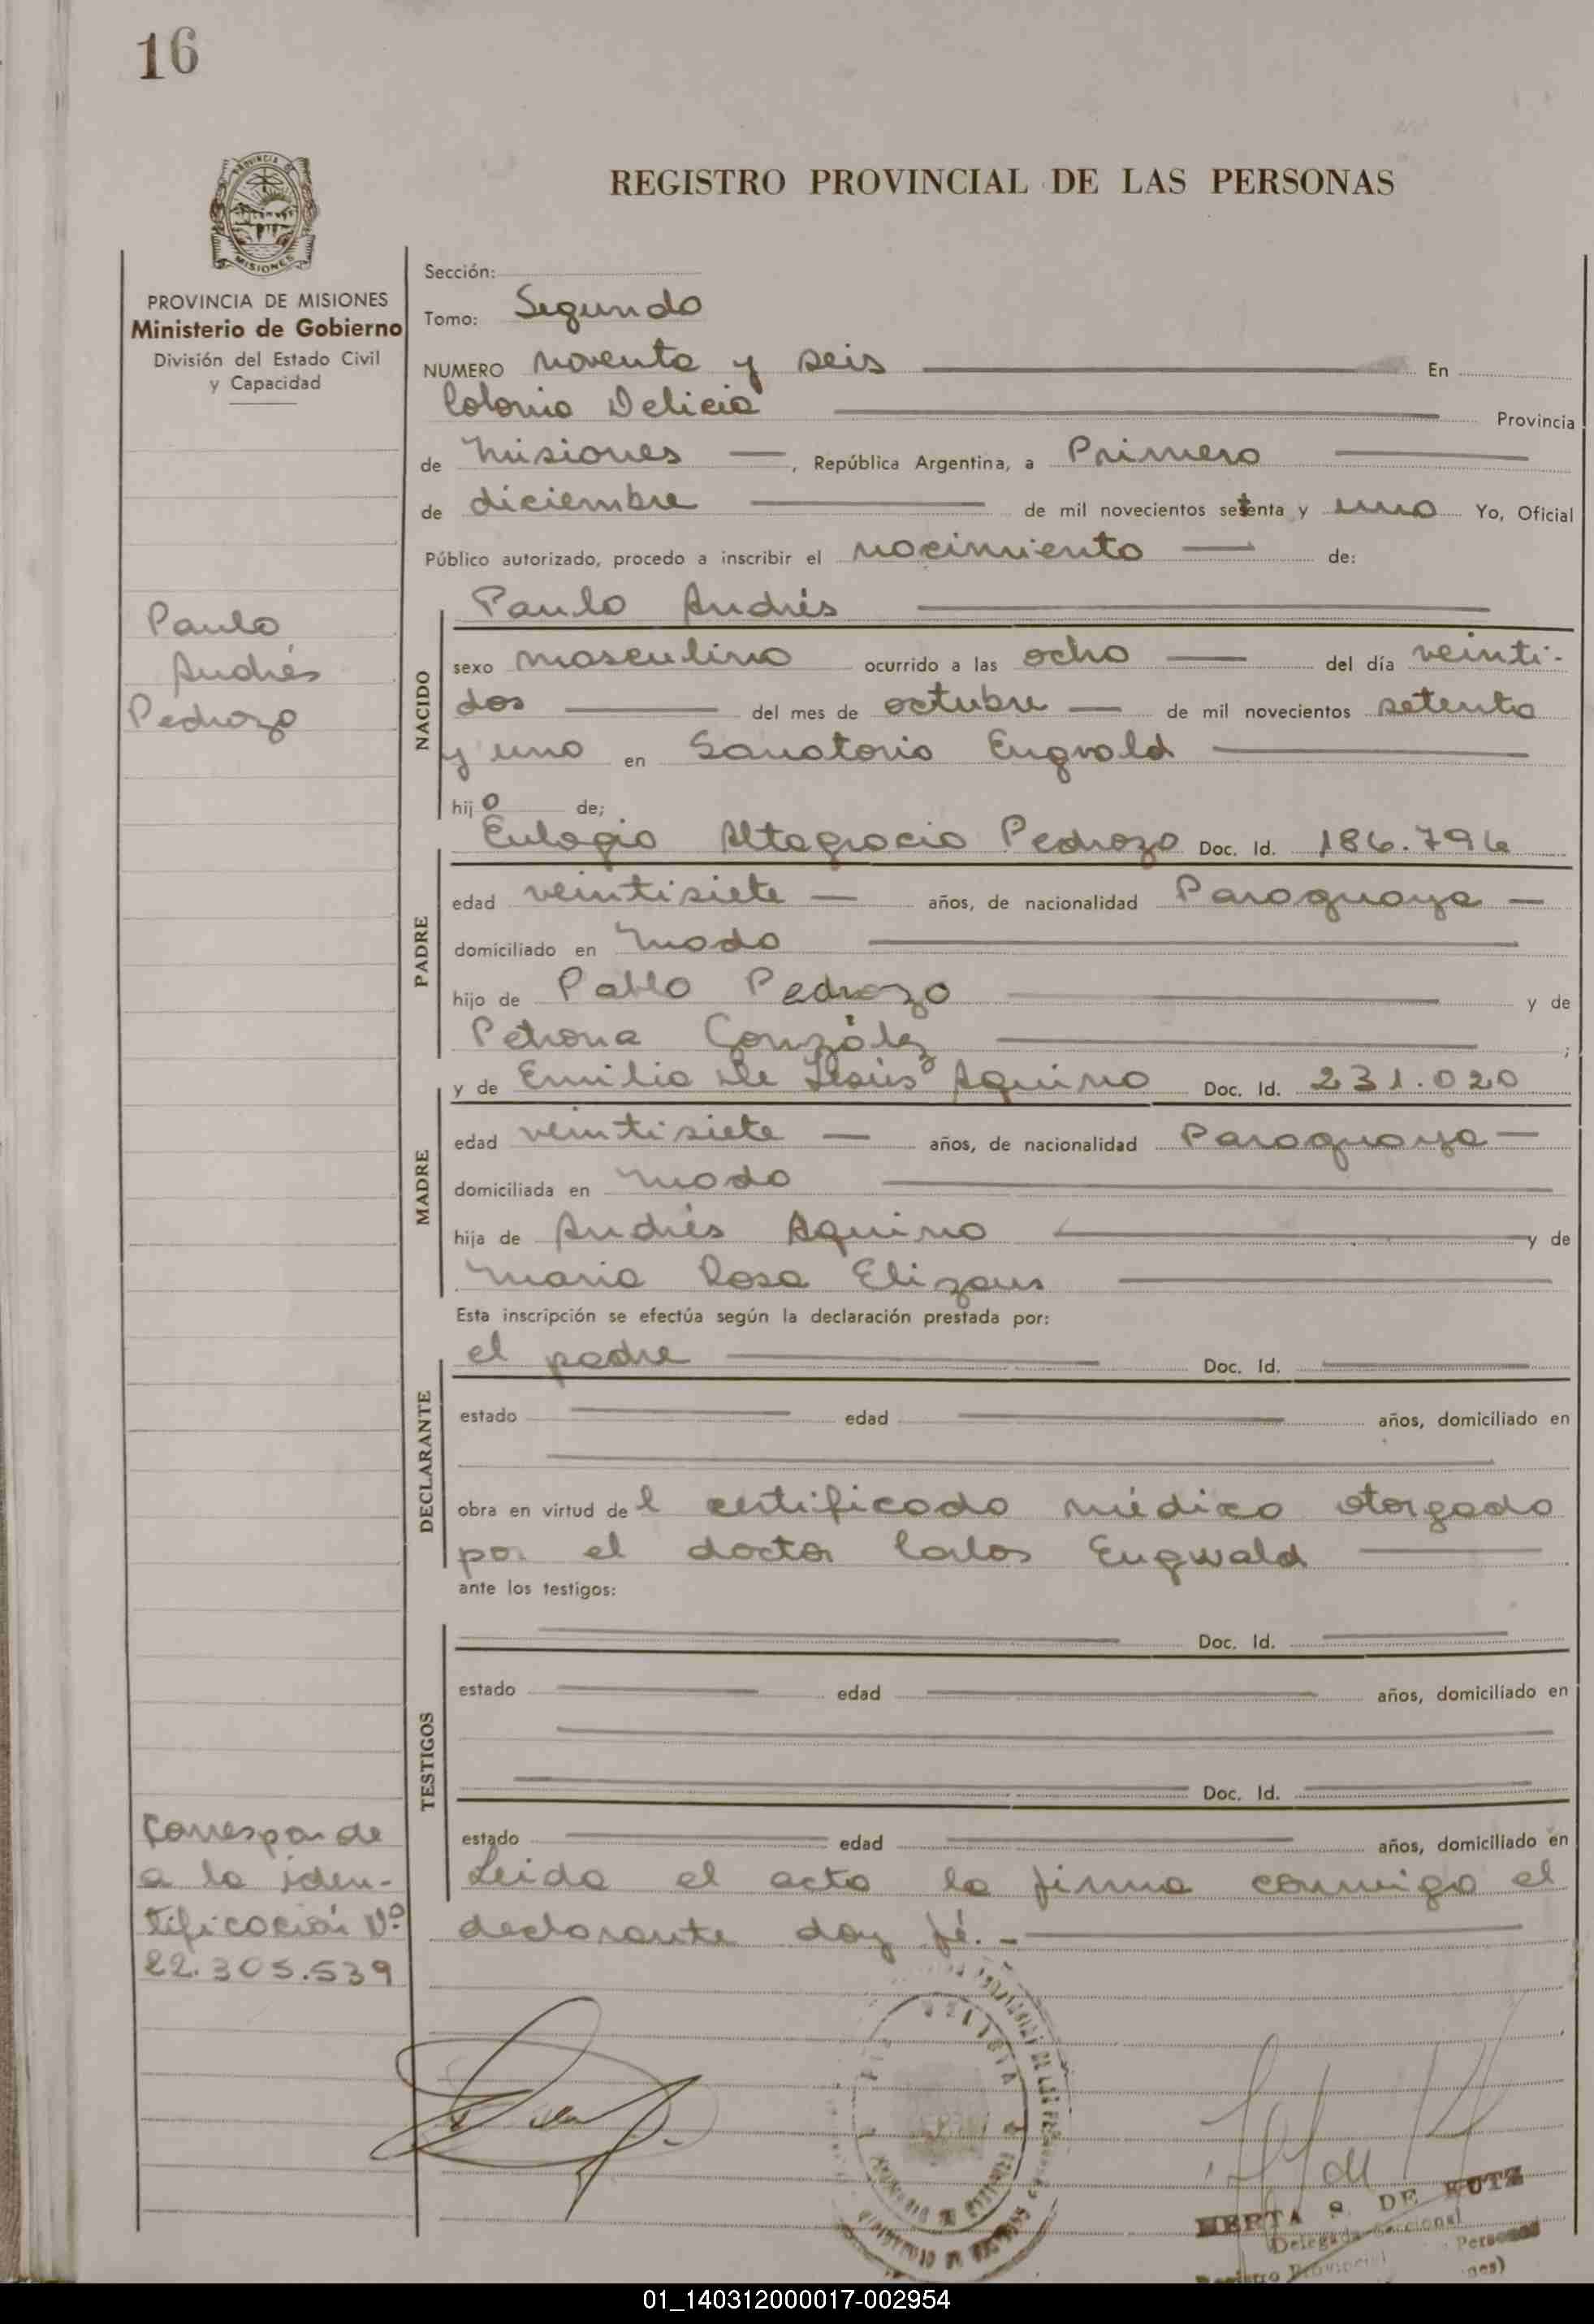 16
REGISTRO PROVINCIAL DE LAS PERSONAS
PROVINCIA
MISIONES
PROVINCIA DE MISIONES
Ministerio de Gobierno
División del Estado Civil
y Capacidad
Paulo
Andrés
Pedrozo
Corresponde
a la iden-
tificación Nº
22.305.539
Sección:
Tomo: Segundo
NUMERO noventa y seis En
Colonia Delicia Provincia
de Misiones, República Argentina, a Primero
de diciembre de mil novecientos setenta y uno Yo, Oficial
Público autorizado, procedo a inscribir el nacimiento de:
NACIDO
Paulo Andrés
sexo masculino ocurrido a las ocho del día veinti-
dos del mes de octubre de mil novecientos setenta
y uno en Sanatorio Engvald
hijo de;
PADRE
Eulogio Altagracio Pedrozo Doc. Id. 186.796
edad veintisiete años, de nacionalidad Paraguaya
domiciliado en Mado
hijo de Pablo Pedrozo y de
Petrona González ;
MADRE
y de Emilia De Jesús Aquino Doc. Id. 231.020
edad veintisiete años, de nacionalidad Paraguaya
domiciliada en Mado
hija de Andrés Aquino y de
Maria Rosa Elizaur
Esta inscripción se efectúa según la declaración prestada por:
DECLARANTE
el padre Doc. Id.
estado edad años, domiciliado en
obra en virtud del certificado médico otorgado
por el doctor Carlos Engwald
ante los testigos:
TESTIGOS
Doc. Id.
estado edad años, domiciliado en
Doc. Id.
estado edad años, domiciliado en
Leida el acta la firma conmigo el
declarante doy fé.-
HERTA S. DE KUTZ
Delegada Seccional
Registro Provincial Personas
01_140312000017-002954